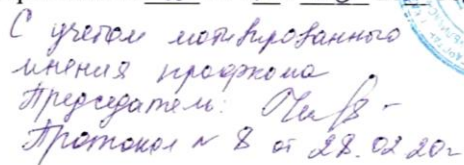 С учетом мотивированного
мнения профкома
Председатель:
Протокол № 8 от 28.02.20г